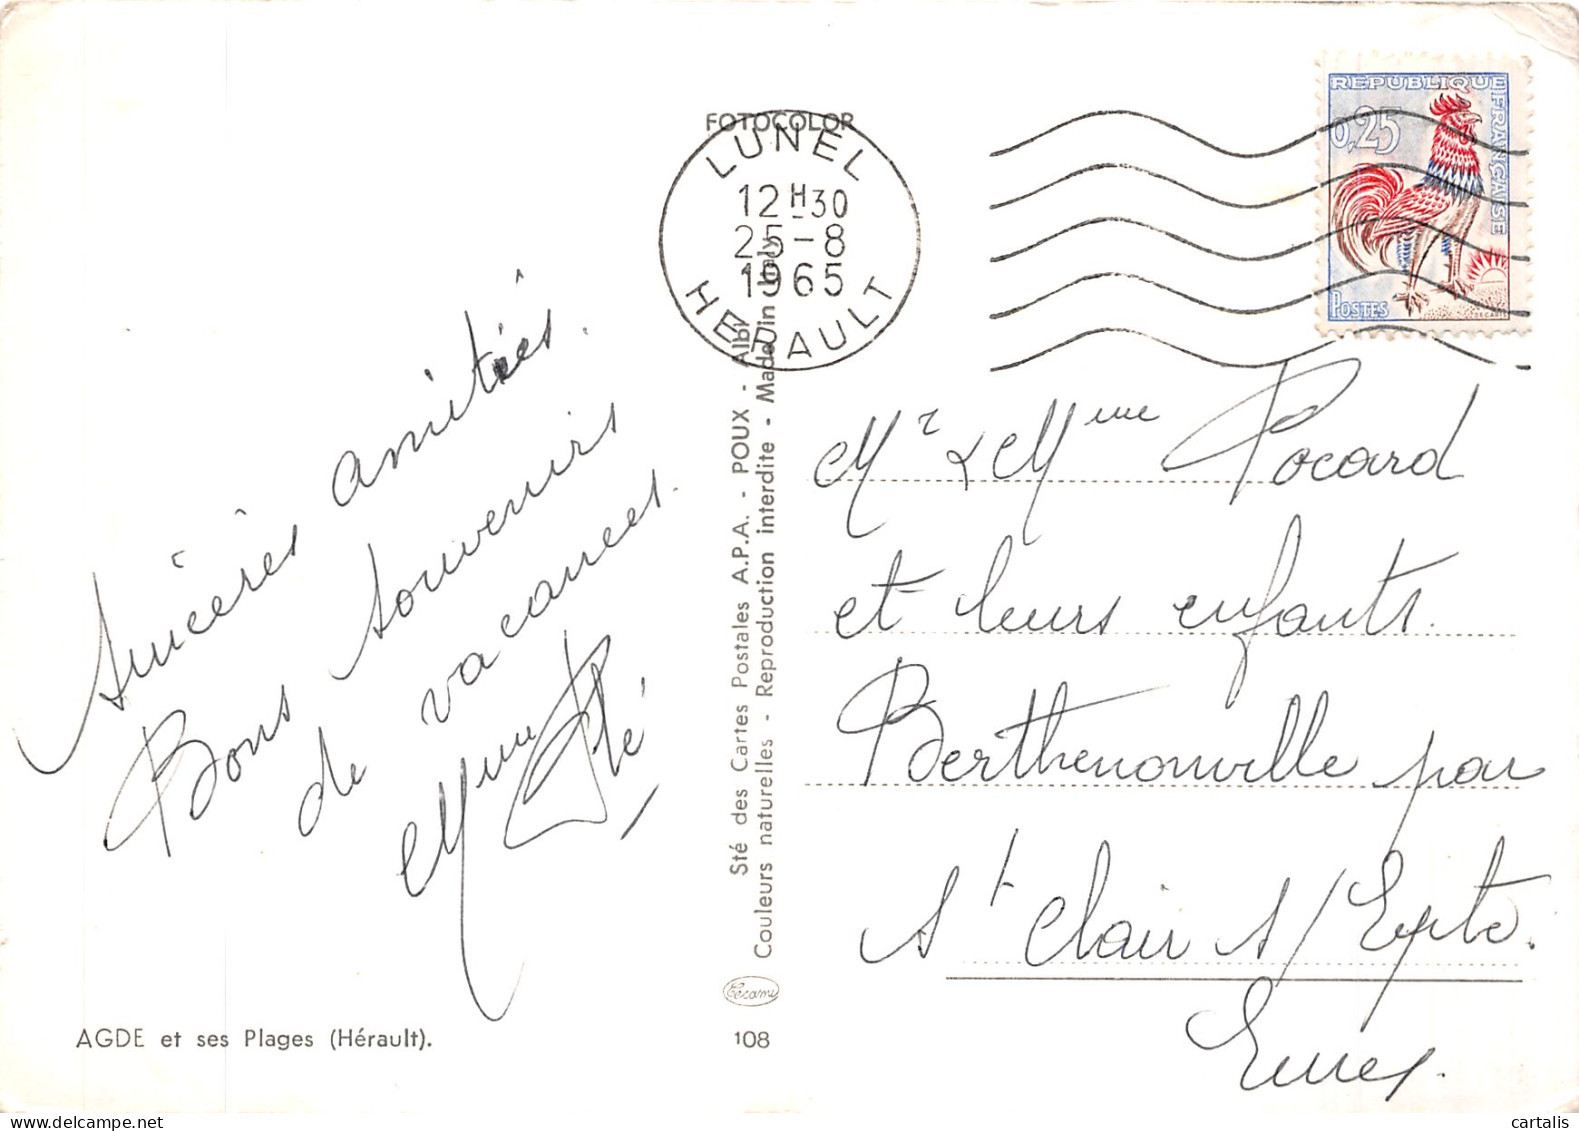 Sincères amitiés.
Bons souvenirs
de vacances.
Mme Plé
AGDE et ses Plages (Hérault).
FOTOCOLOR
LUNEL
12H30
25-8
1965
HERAULT
Sté des Cartes Postales A.P.A. - POUX - Albi
Couleurs naturelles - Reproduction interdite - Made in Italy
Cécami
108
REPUBLIQUE FRANÇAISE
0,25
POSTES
DECARIS
Mr & Mme Pocard
et leurs enfants.
Berthenonville par
St Clair s/Epte.
Eure.
cartalis